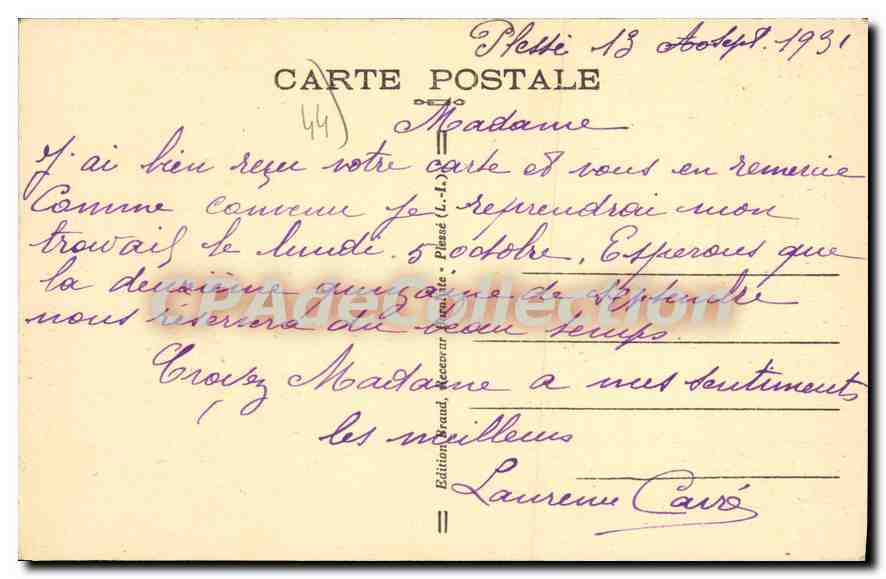 Plessé 13 Sept. 1931
CARTE POSTALE
44)
Madame
J'ai bien reçu votre carte et vous en remercie
Comme convenu je reprendrai mon
travail le lundi 5 octobre, Esperons que
la deuxième quinzaine de Septembre
nous réservera du beau temps
Croyez Madame a mes sentiments
les meilleurs
Laurence
Edition Braud, Receveur Buraliste - Plessé (L.-I.)
CPAdeCollection